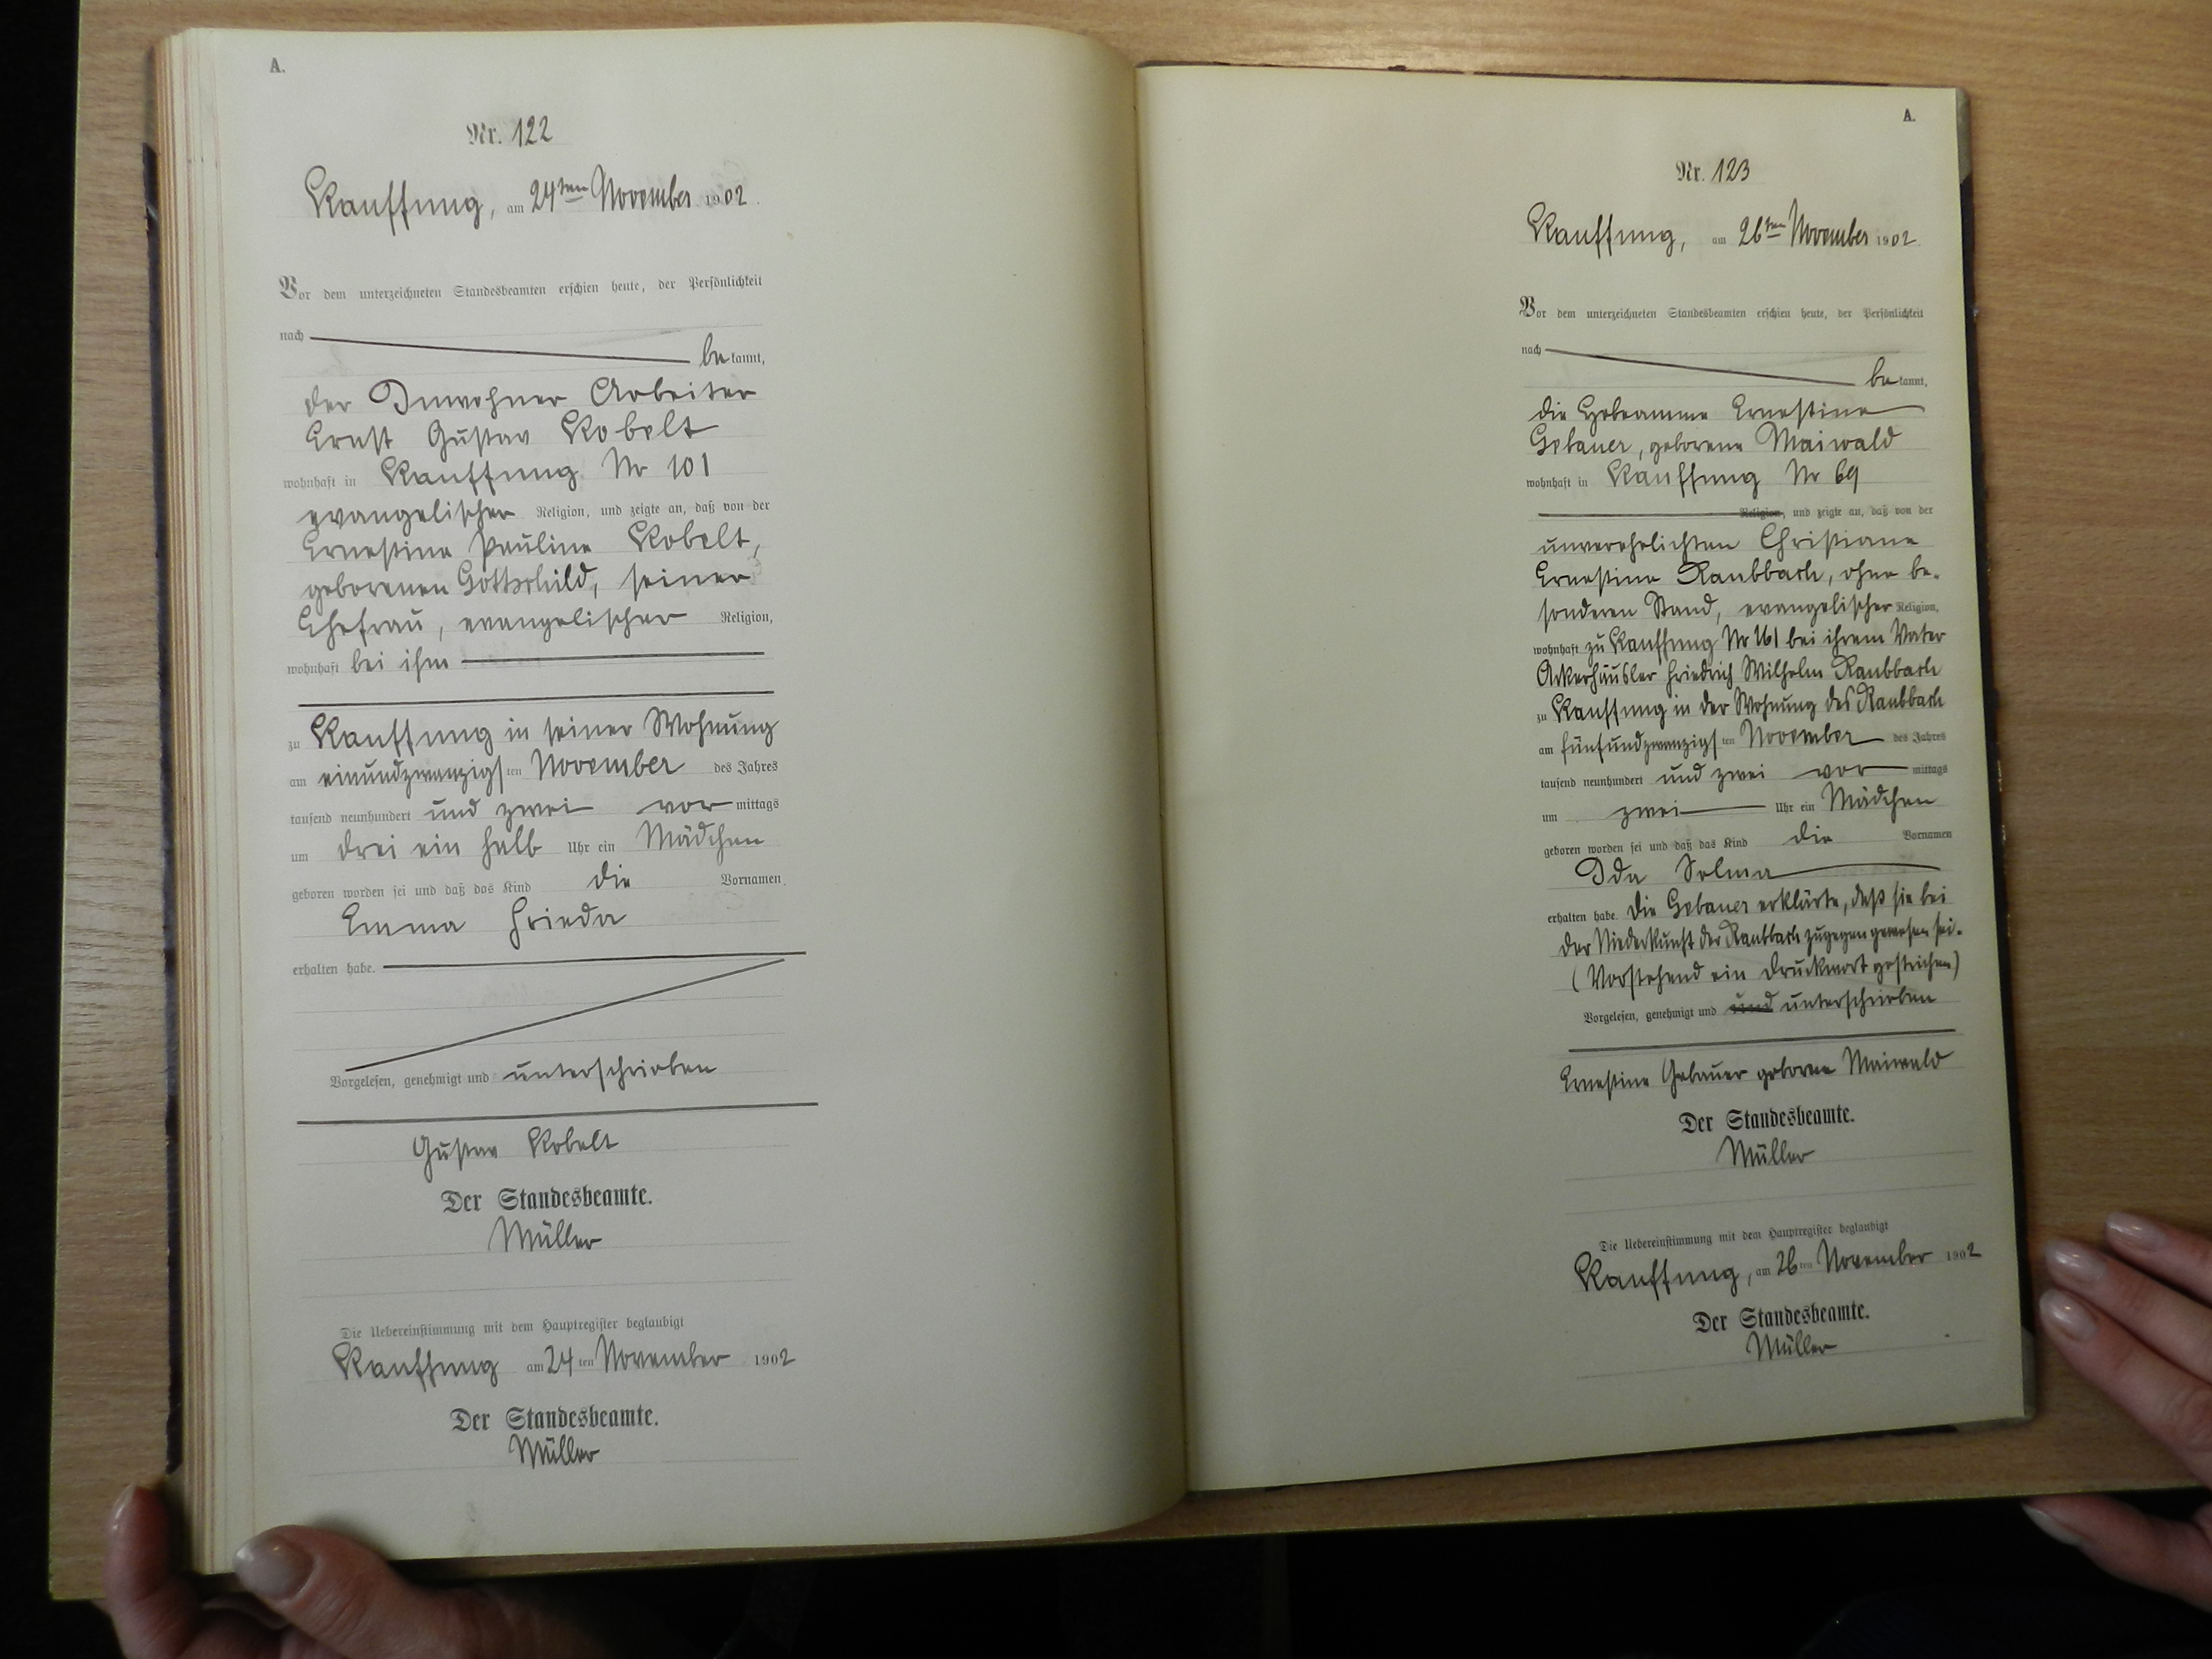 A.
Nr. 122
Kauffung, am 24ten November 1902.
Vor dem unterzeichneten Standesbeamten erschien heute, der Persönlichkeit
nach bekannt,
der Inwohner Arbeiter
Ernst Gustav Kobelt
wohnhaft in Kauffung Nr 101
evangelischer Religion, und zeigte an, daß von der
Ernestine Pauline Kobelt,
geborenen Gottschild, seiner
Ehefrau, evangelischer Religion,
wohnhaft bei ihm
zu Kauffung in seiner Wohnung
am einundzwanzigsten November des Jahres
tausend neunhundert und zwei vormittags
um drei ein halb Uhr ein Mädchen
geboren worden sei und daß das Kind die Vornamen
Emma Frieda
erhalten habe.
Vorgelesen, genehmigt und unterschrieben
Gustav Kobelt
Der Standesbeamte.
Müller
Die Uebereinstimmung mit dem Hauptregister beglaubigt
Kauffung am 24ten November 1902
Der Standesbeamte.
Müller
A.
Nr. 123
Kauffung, am 26ten November 1902.
Vor dem unterzeichneten Standesbeamten erschien heute, der Persönlichkeit
nach bekannt,
die Hebeamme Ernestine
Gebauer, geborene Maiwald
wohnhaft in Kauffung Nr 69
Religion, und zeigte an, daß von der
unverehelichten Christiane
Ernestine Raubbach, ohne be-
sonderen Stand, evangelischer Religion,
wohnhaft zu Kauffung Nr 161 bei ihrem Vater
Ackerhäusler Friedrich Wilhelm Raubbach
zu Kauffung in der Wohnung des Raubbach
am fünfundzwanzigsten November des Jahres
tausend neunhundert und zwei vormittags
um zwei Uhr ein Mädchen
geboren worden sei und daß das Kind die Vornamen
Ida Selma
erhalten habe. Die Gebauer erklärte, daß sie bei
der Niederkunft der Raubbach zugegen gewesen sei.
(Vorstehend ein Druckwort gestrichen)
Vorgelesen, genehmigt und und unterschrieben
Ernestine Gebauer geborene Maiwald
Der Standesbeamte.
Müller
Die Uebereinstimmung mit dem Hauptregister beglaubigt
Kauffung, am 26ten November 1902
Der Standesbeamte.
Müller